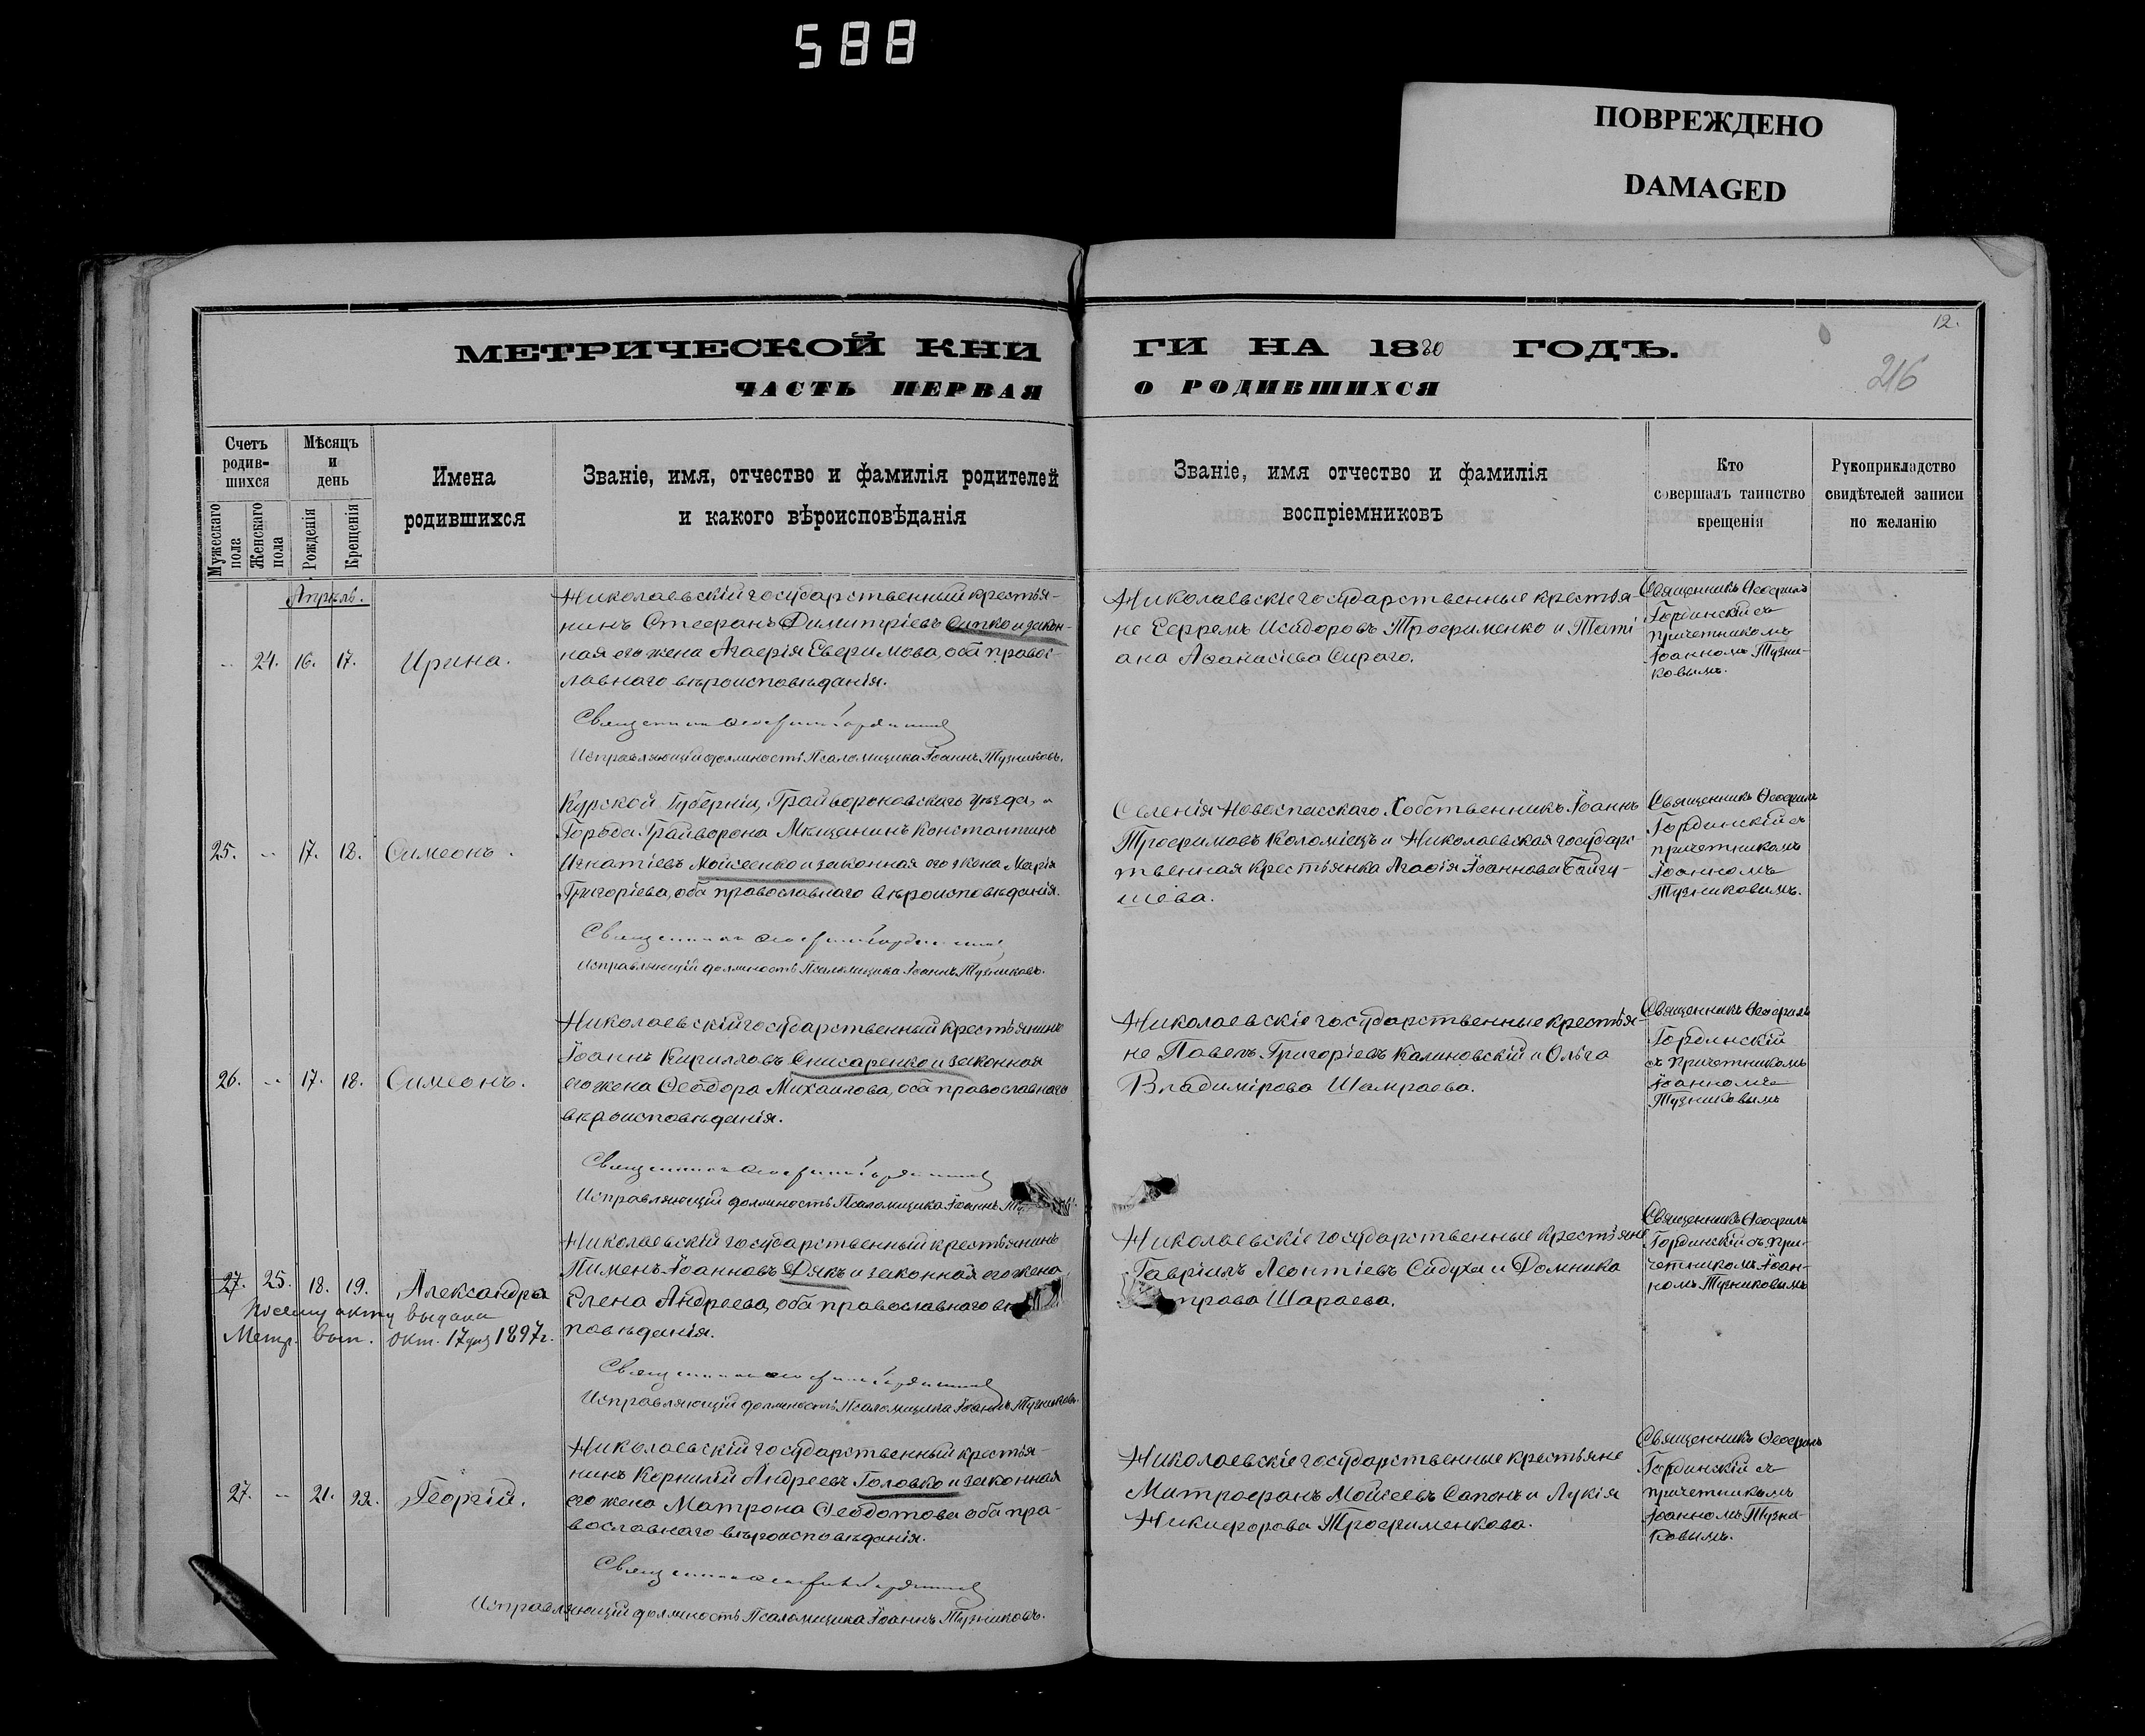 588
ПОВРЕЖДЕНО
DAMAGED
12.
216
МЕТРИЧЕСКОЙ КНИ
ГИ НА 1880 ГОДЪ.
ЧАСТЬ ПЕРВАЯ
О РОДИВШИХСЯ
Счетъ родив-шихся
Мужескаго пола
Женскаго пола
Мѣсяцъ и день
Рожденія
Крещенія
Имена родившихся
Званіе, имя, отчество и фамилія родителей
и какого вѣроисповѣданія
Званіе, имя отчество и фамилія
воспріемниковъ
Кто
совершалъ таинство
крещенія
Рукоприкладство
свидѣтелей записи
по желанію
Апрѣль.
-- 24. 16. 17. Ирина.
Николаевскій государственный крестья-
нинъ Стефанъ Димитріевъ Сипко и закон-
ная его жена Агафія Евфимова, оба правос-
лавнаго вѣроисповѣданія.
Священникъ Ѳеофилъ Гординскій
Исправляющій должность Псаломщика Іоаннъ Тузниковъ.
Николаевскіе государственные крестья-
не Ефремъ Исидоровъ Трофименко и Таті
ана Аѳанасіева Сираго.
Священникъ Ѳеофилъ
Гординскій съ
причетникомъ
Іоанномъ Тузни-
ковымъ.
25. -- 17. 18. Симеонъ.
Курской Губерніи, Грайвороновскаго уѣзда,
Города Грайворона Мѣщанинъ Константинъ
Игнатіевъ Мойсеенко и законная его жена Марія
Григоріева, оба православнаго вѣроисповѣданія.
Священникъ Ѳеофилъ Гординскій
Исправляющій должность Псаломщика Іоаннъ Тузниковъ.
Селенія Новоспасскаго Собственникъ Іоаннъ
Трофимовъ Коломіецъ и Николаевская государс-
твенная крестьянка Агафія Іоаннова Байгу-
шева.
Священникъ Ѳеофилъ
Гординскій съ
причетникомъ
Іоанномъ
Тузниковымъ.
26. -- 17. 18. Симеонъ.
Николаевскій государственный крестьянинъ
Іоаннъ Кирилловъ Снисаренко и законная
его жена Ѳеодора Михаилова, оба православнаго
вѣроисповѣданія.
Священникъ Ѳеофилъ Гординскій
Исправляющій должность Псаломщика Іоаннъ
Николаевскіе государственные крестья-
не Павелъ Григоріевъ Калиновскій и Ольга
Владимірова Шамраева.
Священникъ Ѳеофилъ
Гординскій
съ причетникомъ
Іоанномъ
Тузниковымъ
27. 25. 18. 19. Александра
По сему акту выдана
Метр. вып. окт. 17 дня 1897 г.
Николаевскій государственный крестьянинъ
Пименъ Іоанновъ Дякъ и законная его жена
Елена Андреева, оба православнаго вѣ
повѣданія.
Священникъ Ѳеофилъ Гординскій
Исправляющій должность Псаломщика Іоаннъ Тузниковъ.
Николаевскіе государственные крестьяне
Гавріилъ Леонтіевъ Сидуха и Домника
прова Шараева.
Священникъ Ѳеофилъ
Гординскій съ при-
четникомъ Іоан-
номъ Тузниковымъ
27. -- 21. 22. Георгій.
Николаевскій государственный крестья-
нинъ Корнилій Андреевъ Головко и законная
его жена Матрона Ѳеодотова оба пра-
вославнаго вѣроисповѣданія.
Священникъ Ѳеофилъ Гординскій
Исправляющій должность Псаломщика Іоаннъ Тузниковъ.
Николаевскіе государственные крестьяне
Митрофанъ Мойсеевъ Сапонъ и Лукія
Никифорова Трофименкова.
Священникъ Ѳеофилъ
Гординскій съ
причетникомъ
Іоанномъ Тузни-
ковымъ.